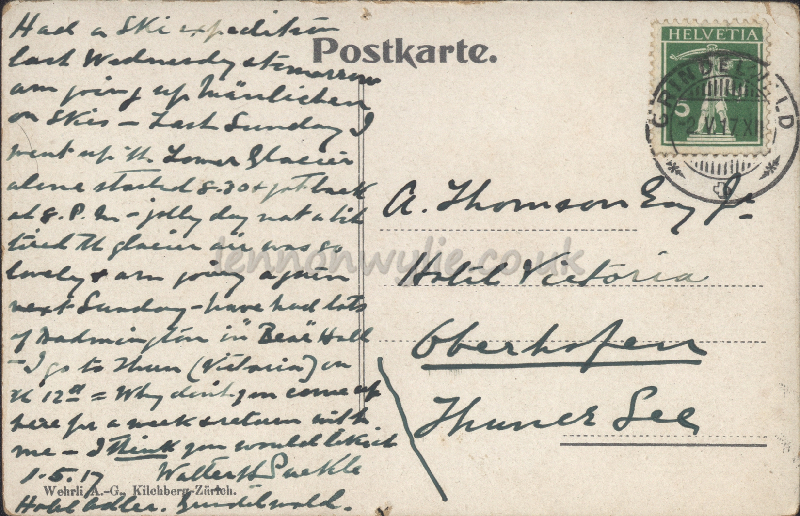 Had a Ski expedition
last Wednesday & tomorrow
am going up Mänlichen
on Skis – Last Sunday I
went up th Lower Glacier
alone started 8.30 & got back
at 8. P.M – jolly day not a bit
tired th glacier air was so
lovely & am going again
next Sunday – have had lots
of Badmington in "Bear" Hall
– I go to Thun (Victoria) on
th 12th = Why don't you come up
here for a week & return with
me – I think you would like it
1.5.17 Walter H
Hotel Adler. Grindelwald.
Wehrli A.-G., Kilchberg-Zürich.
Postkarte.
HELVETIA
5
GRINDELWALD
2.V.17 XII
A. Thomson Esq Jr
Hotel Victoria
Oberhofen
Thuner See
lennonwylie.co.uk